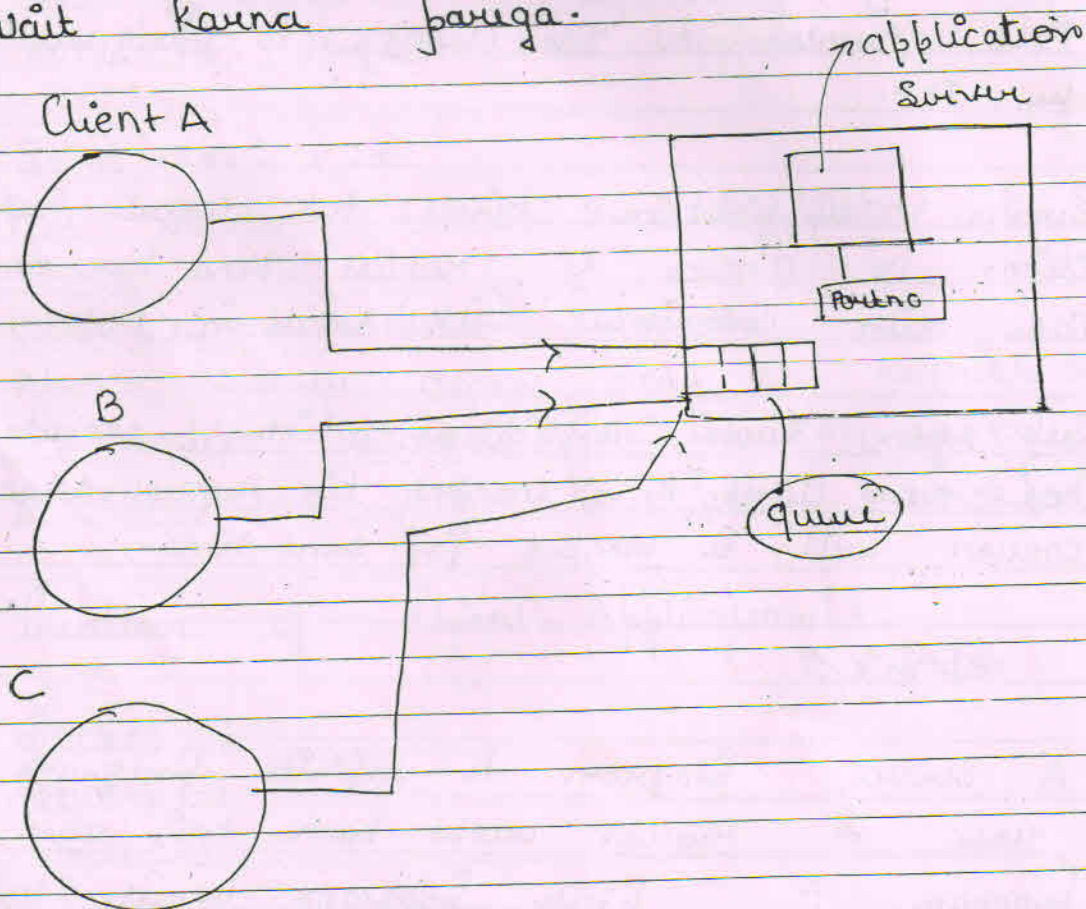 wait karna parega.
application
Server
Client A
Portno
B
queue
C